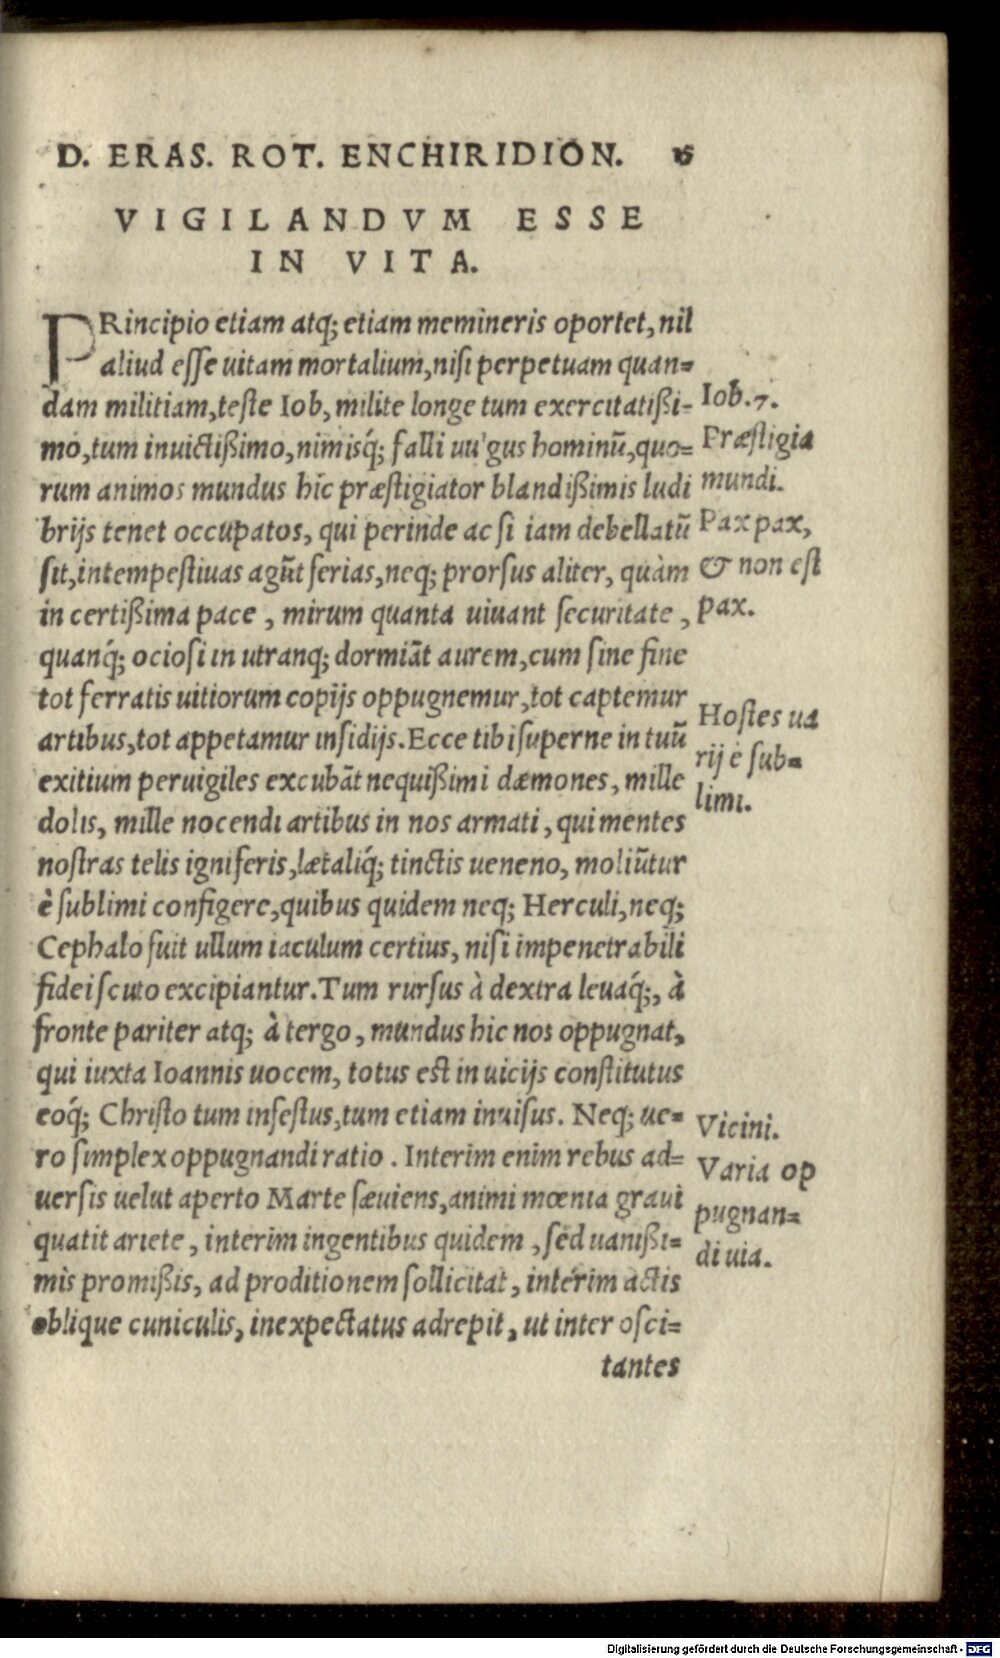 D. ERAS. ROT. ENCHIRIDION. 15
VIGILANDVM ESSE
IN VITA.
PRincipio etiam atq; etiam memineris oportet, nil
aliud esse uitam mortalium, nisi perpetuam quan=
dam militiam, teste Iob, milite longe tum exercitatißi=
mo, tum inuictißimo, nimisq́; falli uulgus hominũ, quo=
rum animos mundus hic præstigiator blandißimis ludi
brijs tenet occupatos, qui perinde ac si iam debellatũ
sit, intempestiuas agũt ferias, neq; prorsus aliter, quàm
in certißima pace, mirum quanta uiuant securitate,
quanq́; ociosi in utranq; dormiãt aurem, cum sine fine
tot ferratis uitiorum copijs oppugnemur, tot captemur
artibus, tot appetamur insidijs. Ecce tibi superne in tuũ
exitium peruigiles excubãt nequißimi dæmones, mille
dolis, mille nocendi artibus in nos armati, qui mentes
nostras telis igniferis, lætaliq́; tinctis ueneno, moliũtur
è sublimi configere, quibus quidem neq; Herculi, neq;
Cephalo fuit ullum iaculum certius, nisi impenetrabili
fidei scuto excipiantur. Tum rursus à dextra leuaq́;, à
fronte pariter atq; à tergo, mundus hic nos oppugnat,
qui iuxta Ioannis uocem, totus est in uicijs constitutus
eoq́; Christo tum infestus, tum etiam inuisus. Neq; ue=
ro simplex oppugnandi ratio. Interim enim rebus ad=
uersis uelut aperto Marte sæuiens, animi mœnia graui
quatit ariete, interim ingentibus quidem, sed uanißi=
mis promißis, ad proditionem sollicitat, interim actis
oblique cuniculis, inexpectatus adrepit, ut inter osci=
tantes
Iob. 7.
Præstigia
mundi.
Pax pax,
& non est
pax.
Hostes ua
rij è sub=
limi.
Vicini.
Varia op
pugnan=
di uia.
Digitalisierung gefördert durch die Deutsche Forschungsgemeinschaft - DFG